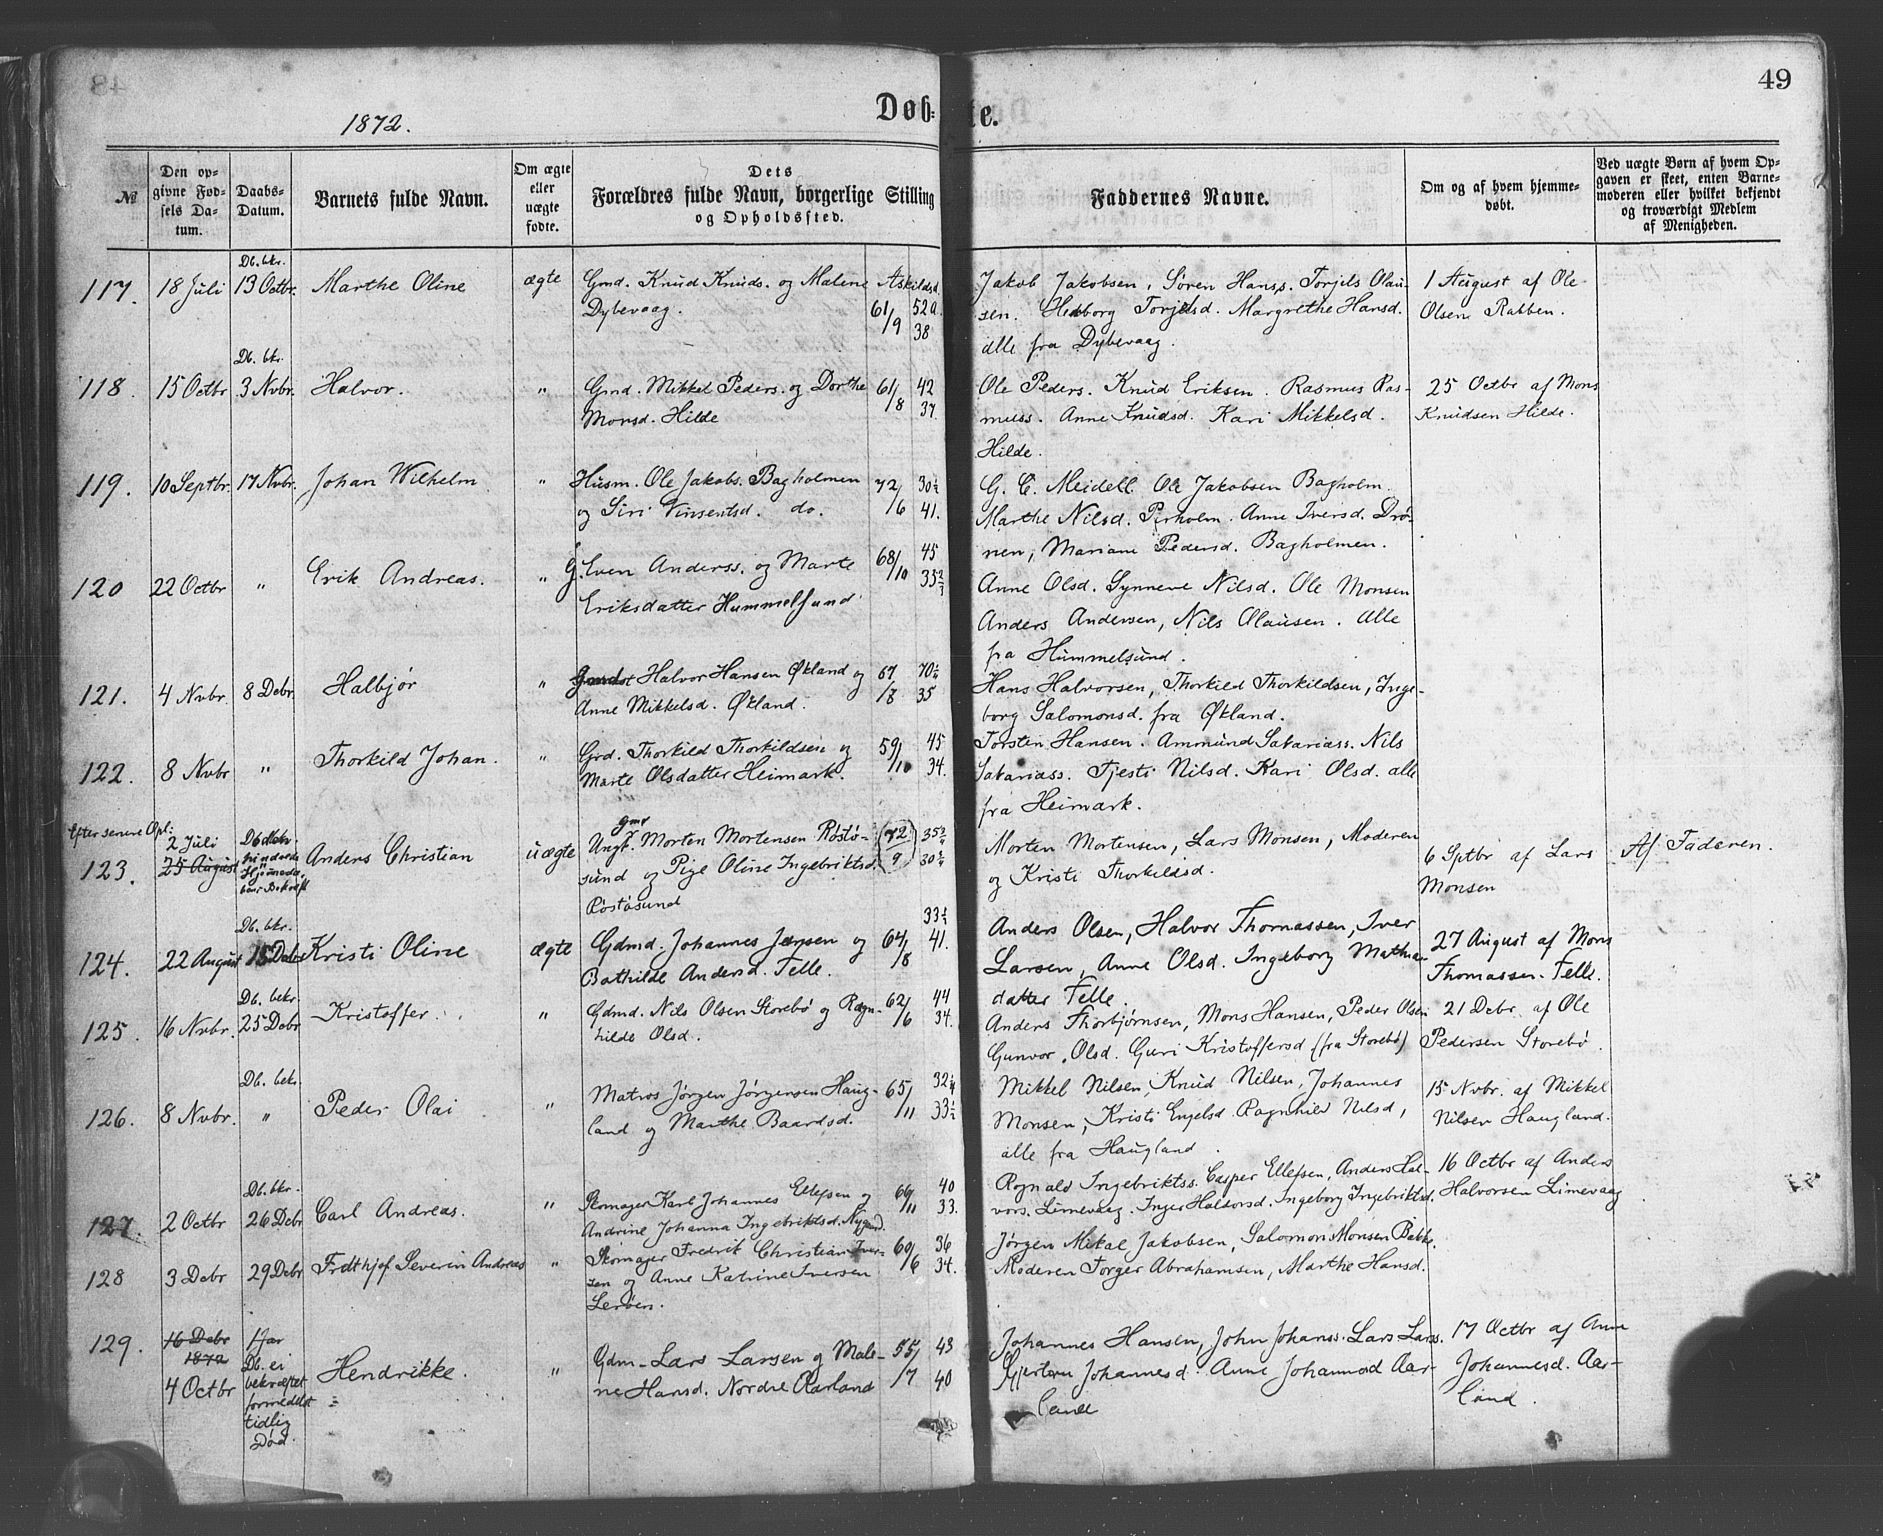 49
Døb-te.
1872.
№
Den op-
givne Fød-
sels Da-
tum.
Daabs-
Datum.
Barnets fulde Navn.
Om ægte
eller
uægte
fødte.
Dets
Forældres fulde Navn, borgerlige Stilling
og Opholdssted.
Faddernes Navne.
Om og af hvem hjemme-
døbt.
Ved uægte Børn af hvem Op-
gaven er skeet, enten Barne-
moderen eller hvilket bekjendt
og troværdigt Medlem
af Menigheden.
117. 18 Juli Db. bkr. 13 Octbr. Marthe Oline ægte
Gmd. Knud Knuds. og Malene Askildsd.
Dybevaag. 61/9 52a. 38
Jakob Jakobsen, Sören Hanss. Torjels Olau-
sen. Torjelsd. Margrethe Hansd.
alle fra Dybevaag.
1 August af Ole
Olsen Rabben.
118. 15 Octbr Db. bkr. 3 Nvbr. Halvor. "
Gmd. Mikkel Peders. og Dorthe
Monsd. Hilde 61/8 42 37.
Ole Peders. Knud Eriksen. Rasmus Ras-
muss. Anne Knudsd. Kari Mikkelsd.
Hilde.
25 Octbr af Mons
Knudsen Hilde.
119. 10 Septbr. 17 Nvbr. Johan Wilhelm "
Husm. Ole Jakobs. Bagholmen
og Siri Vinsentsd. do. 72/6 30½ 41.
G. C. Meidell. Ole Jakobsen Bagholm.
Marthe Nilsd. Pirholm. Anne Iversd. Drö-
nen, Mariane Pedersd. Bagholmen.
120 22 Octbr " Erik Andreas. "
G. Even Anderss. og Marte
Eriksdatter Hummelsund 68/10 45 35⅔
Anne Olsd. Synneve Nilsd. Ole Monsen
Anders Andersen, Nils Olausen. Alle
fra Hummelsund.
121. 4 Nvbr. 8 Debr. Halbjør "
Halvor Hansen Økland og
Anne Mikkelsd. Økland. 67/8 70½ 35
Hans Halvorsen, Thorkild Thorkildsen, Inge-
borg Salomonsd. fra Økland.
122. 8 Nvbr " Thorkild Johan. "
Grd. Thorkild Thorkildsen og
Marte Olsdatter Heimark. 59/10 45 34.
Torsten Hansen. Ammund Sakariass. Nils
Sakariass. Tjesti Nilsd. Kari Olsd. alle
fra Heimark.
123. Efter senere Opl:
2 Juli
25 August
Anders Christian uægte
gmr
Ungk. Morten Mortensen Röstö-
sund og Pige Oline Ingebriktsd.
Röstösund (72/9)
Morten Mortensen, Lars Monsen, Moderen
og Kristi Thorkildsd.
6 Sptbr af Lars
Monsen
Af Faderen.
124. 22 August Db. bkr. 15 Debr Kristi Oline ægte
Gdmd. Johannes Jensen og
Bathilde Andersd. Telle. 64/8 33½ 41.
Anders Olsen, Halvor Thomassen, Iver
Larsen, Anne Olsd. Ingeborg Mathia
datter Telle.
27 August af Mons
Thomassen Telle.
125. 16 Nvbr. Db. bekr. 25 Debr Kristoffer. "
Gdmd. Nils Olsen Storebö og Ragn-
hilde Olsd. 62/6 44 34.
Anders Thorbjørnsen, Mons Hansen, Peder Olsen
Gunvor Olsd. Guri Kristoffersd (fra Storebö)
21 Debr. af Ole
Pedersen Storebö.
126. 8 Nvbr. Db. bekr. " Peder Olai "
Matros Jörgen Jörgensen Haug-
land og Marthe Baardsd. 65/11 32¼ 33½
Mikkel Nilsen, Knud Nilsen, Johannes
Monsen, Kristi Engelsd. Ragnhild Nilsd,
alle fra Haugland.
15 Nvbr. af Mikkel
Nilsen Haugland.
127. 2 Octbr Db. bkr. 26 Debr Carl Andreas. "
Skomager Karl Johannes Ellefsen og
Andrine Johanna Ingebriktsd. 66/11 40 33.
Rognald Ingebriktss. Casper Ellefsen, Anders Hal-
vors. Limevaag. Inger Haldorsd. Ingeborg Ingebriktsd.
16 Octbr af Anders
Halvorsen Limevaag
128 3 Debr 29 Debr Fridthjof Severin Andreas "
Skomager Fredrik Christian Iver-
sen og Anne Katrine Iversen
Leröen. 60/6 36 34.
Jörgen Mikal Jakobsen, Salomon Monsen Bakke,
Moderen Torger Abrahamsen, Marthe Hansd.
129. 16 Debr
1872
4 Octbr
1 Jar
Db. ei
bekræftet
formedelst
tidlig
Død.
Hendrikke. "
Gdm. Lars Larsen og Male-
ne Hansd. Nordre Aarland 55/7 43 40
Johannes Hansen, John Johanss. Lars Larss.
Johannesd. Anne Johannesd Aar-
land
17 Octbr af Anne
Johannesd. Aar-
land.